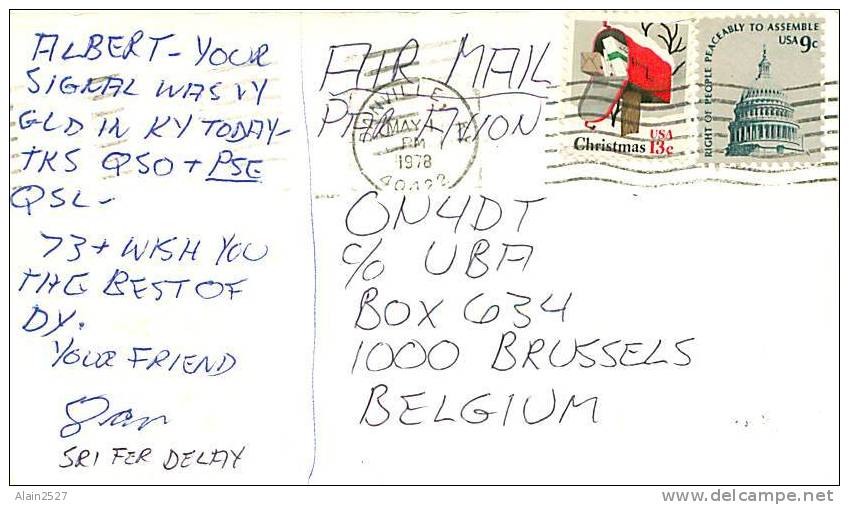 ALBERT - YOUR
SIGNAL WAS VY
GLD IN KY TODAY -
TKS QSO + PSE
QSL -
73 + WISH YOU
THE BEST OF
DX.
YOUR FRIEND
SRI FER DELAY
AIR MAIL
PAR AVION
VILLE,
MAY 4
PM
1978
USA
Christmas 13c
RIGHT OF PEOPLE PEACEABLY TO ASSEMBLE
USA 9c
ON4DT
c/o UBA
BOX 634
1000 BRUSSELS
BELGIUM
Alain2527
http://www.delcampe.net